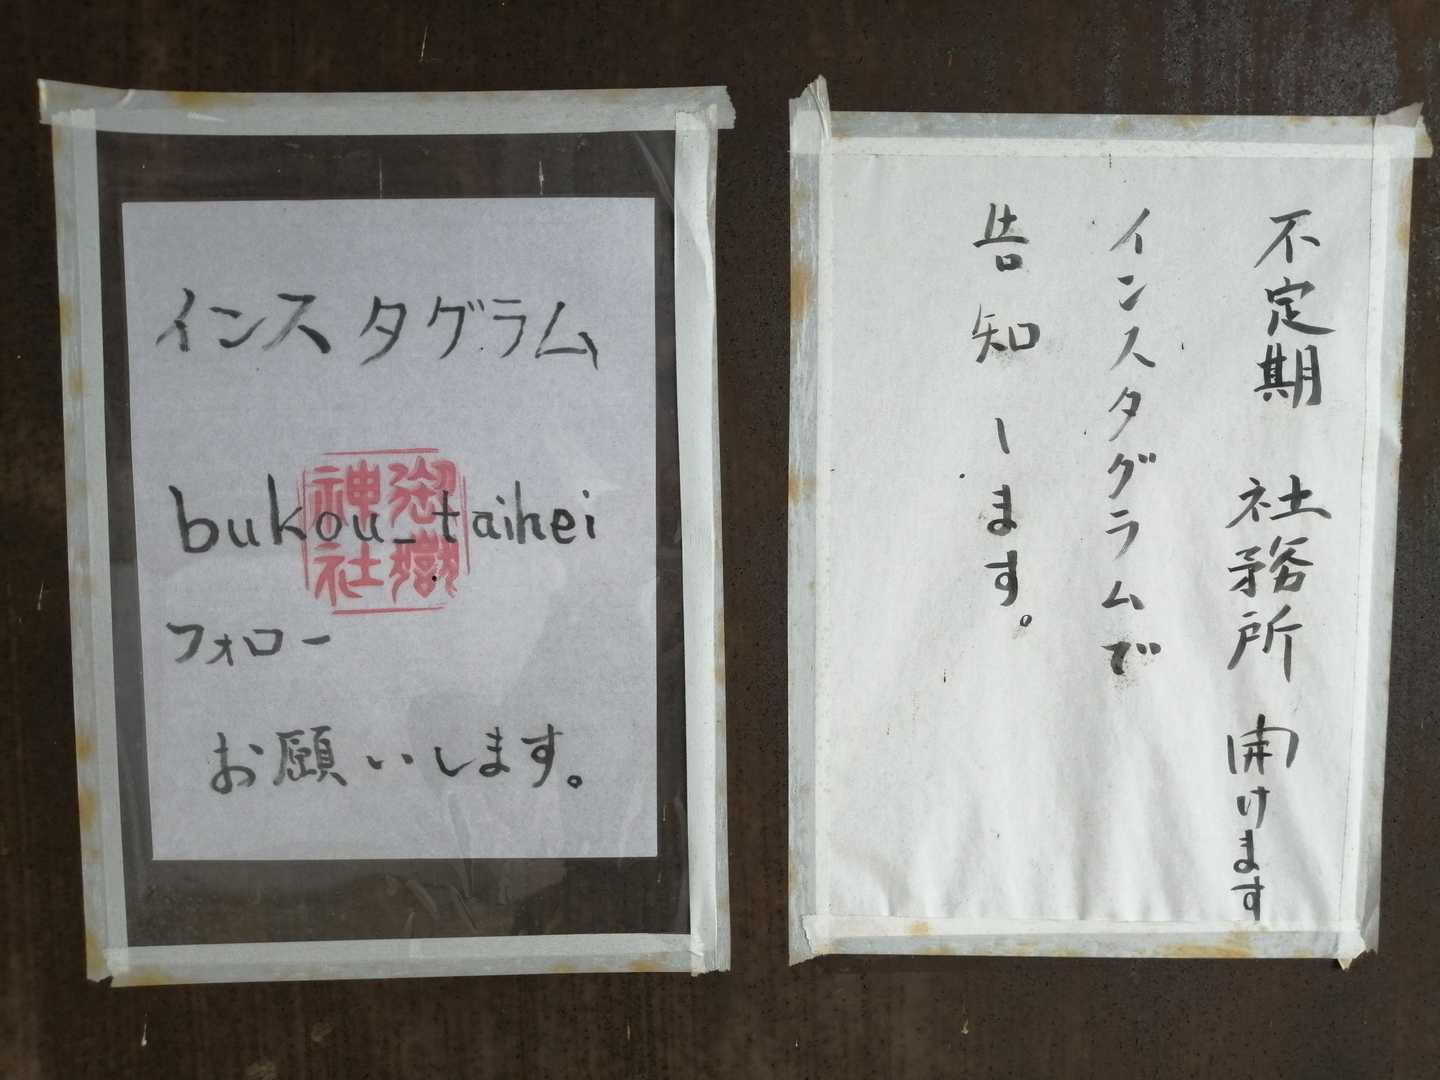 インスタグラム
bukou_taihei
フォロー
お願いします。
御嶽
神社
不定期 社務所 開けます
インスタグラムで
告知します。